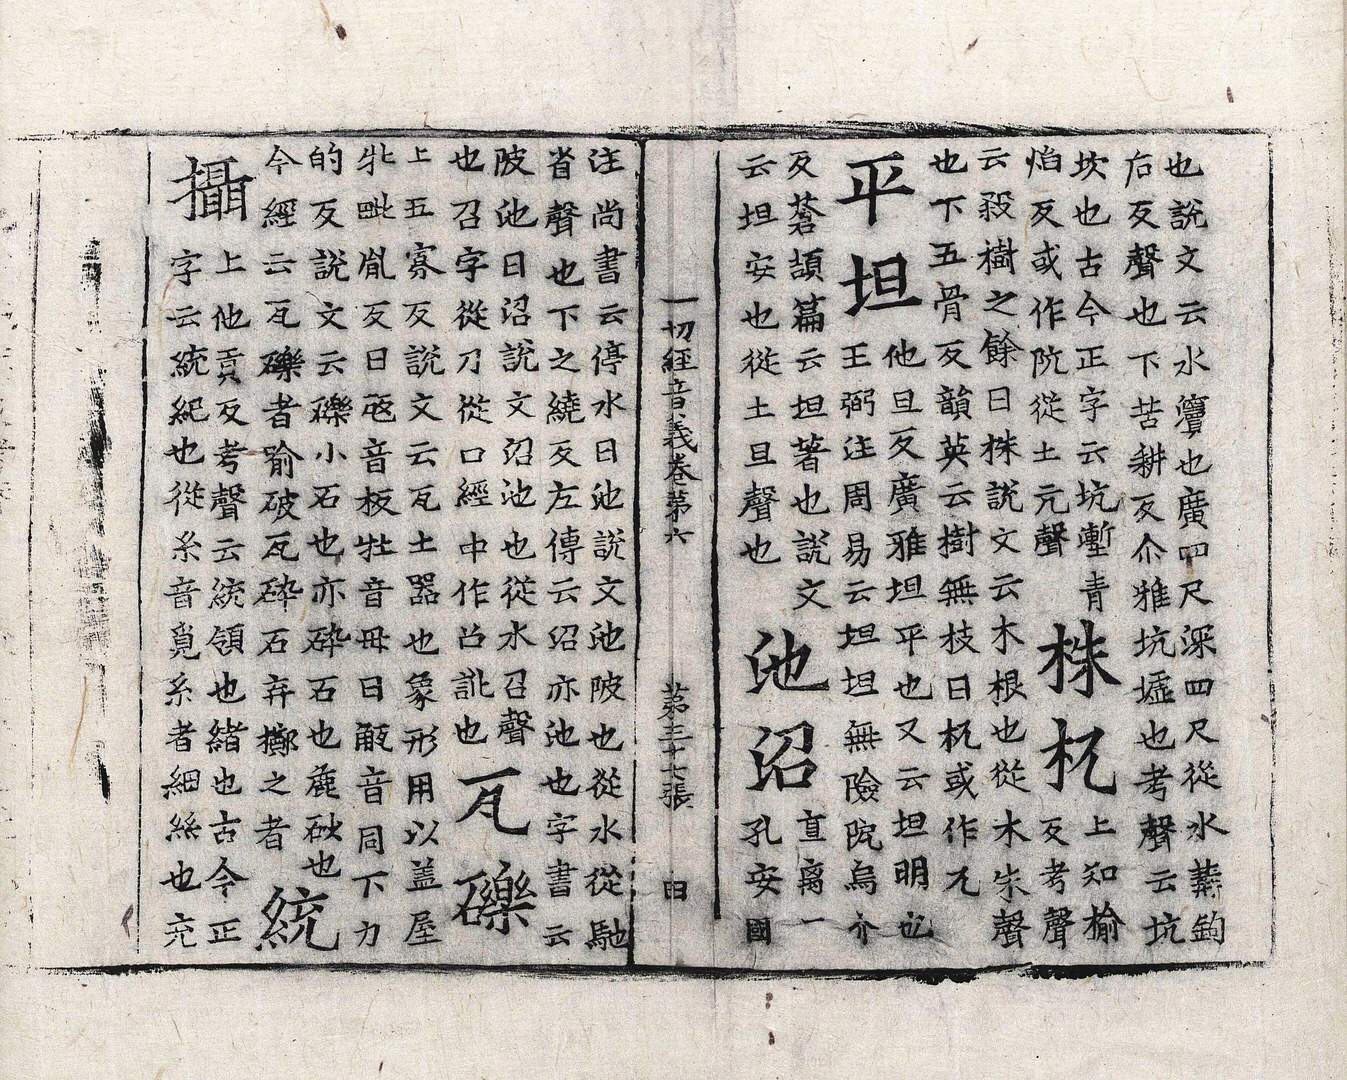 也說文云水瀆也廣四尺深四尺從水冓鉤
后反聲也下苦耕反尒雅坑墟也考聲云坑
坎也古今正字云坑壍青
焰反或作阬從土元聲
株杌
上知榆
反考聲
云殺樹之餘曰株說文云木根也從木朱聲
也下五骨反韻英云樹無枝曰杌或作兀
平坦
他旦反廣雅坦平也又云坦明也
王弼注周易云坦坦無險阨烏介
反蒼頡篇云坦著也說文
云坦安也從土旦聲也
池沼
直离一
孔安國
一切經音義卷第六 第三十七張 田
注尚書云停水曰池說文池陂也從水從馳
省聲也下之繞反左傳云沼亦池也字書云
陂池曰沼說文沼池也從水召聲
也召字從刀從口經中作㕣訛也
瓦礫
上五寡反說文云瓦土器也象形用以盖屋
牝毗胤反曰㼚音板牡音母曰音同下力
的反說文云礫小石也亦碎石也鹿砂也
今經云瓦礫者瑜破瓦碎石弃擲之者
統
攝
上他貢反考聲云統領也緒也古今正
字云統紀也從糸音覓糸者細絲也充